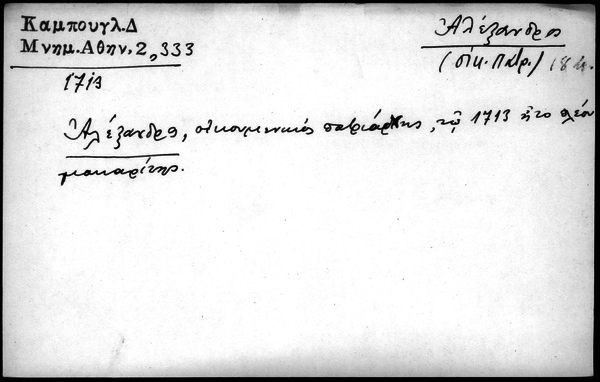 Καμπουγλ.Δ
Μνημ.Αθην.2,333
1713
Ἀλέξανδρος
(οἰκ. Πατρ.) 18 αι.
Ἀλέξανδρος, οἰκουμενικὸς πατριάρχης, τῷ 1713 ἦτο πλέον
μακαρίτης.